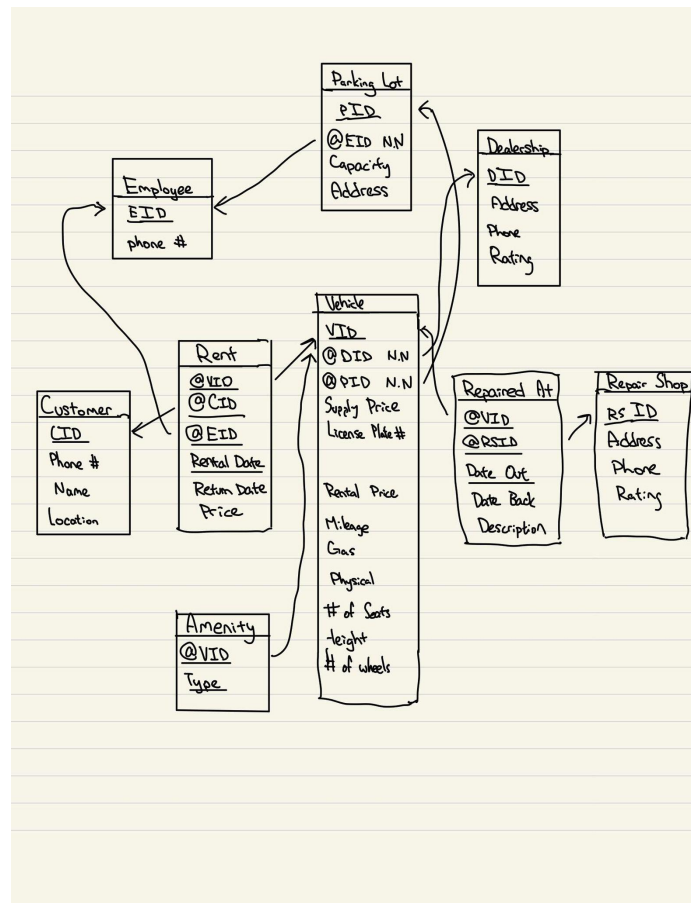 Parking Lot
PID
@EID N.N
Capacity
Address
Dealership
DID
Address
Phone
Rating
Employee
EID
phone #
Vehicle
VID
@DID N.N
@PID N.N
Supply Price
License Plate #
Rental Price
Mileage
Gas
Physical
# of Seats
Height
# of wheels
Rent
@VID
@CID
@EID
Rental Date
Return Date
Price
Customer
CID
Phone #
Name
Location
Repaired At
@VID
@RSID
Date Out
Date Back
Description
Repair Shop
RS ID
Address
Phone
Rating
Amenity
@VID
Type